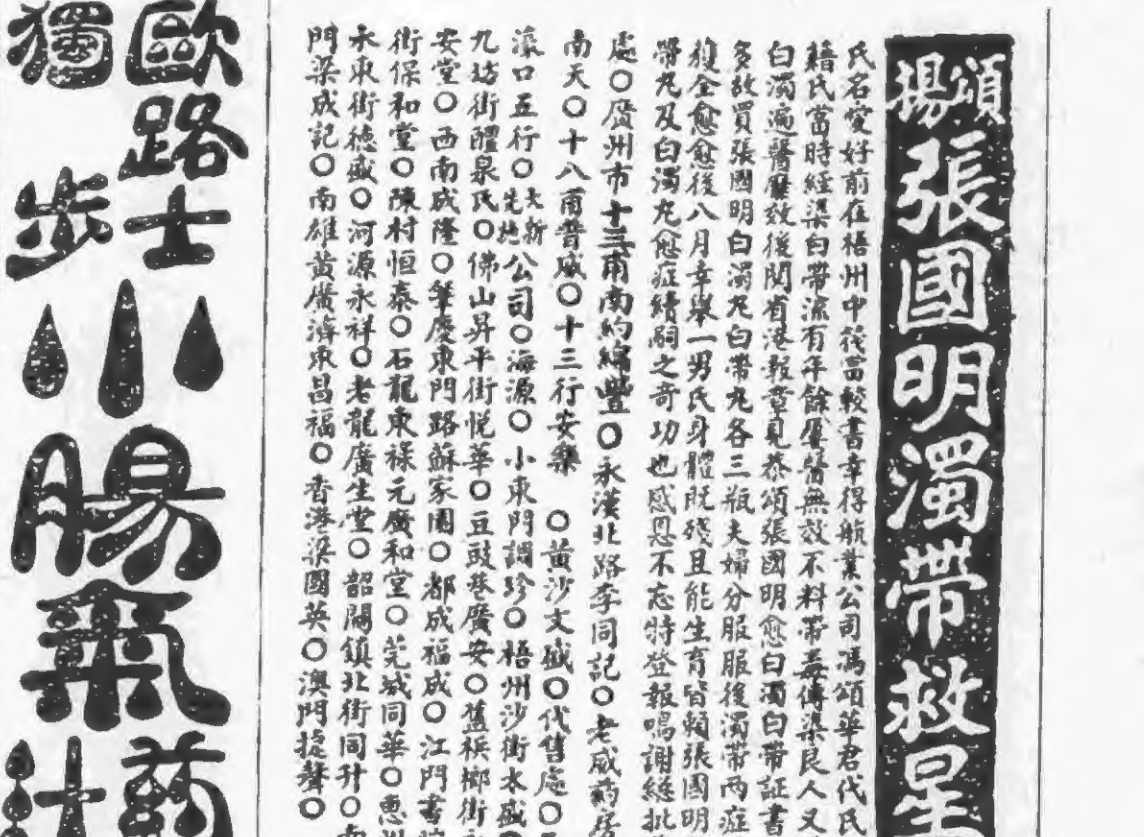 頌揚張國明濁帶救星
氏名愛好前在梧州中筏當較書幸得航業公司馮頌華君代氏
籍氏當時經染白帶流有年餘屢醫無效不料帶毒傳染良人又
白濁遍醫罔效後閱省港報章見恭頌張國明愈白濁白帶証書
多故買張國明白濁丸白帶丸各三瓶夫婦分服服後濁帶兩症
獲全愈愈後八月幸舉一男氏身體既殘且能生育皆賴張國明
帶丸及白濁丸愈症續嗣之奇功也感恩不忘特登報鳴謝總批
處〇廣州市十三甫南約綿豐〇永漢北路李同記〇老威葯房
南天〇十八甫普威〇十三行安樂 〇黃沙文盛〇代售處〇
滘口五行〇大新先施公司〇海源〇小東門調珍〇梧州沙街永盛〇
九坊街醴泉氏〇佛山昇平街悅華〇豆豉巷廣安〇舊檳榔街
安堂〇西南成隆〇肇慶東門路蘇家園〇都成福成〇江門書
街保和堂〇陳村恒泰〇石龍東祿元廣和堂〇莞城同華〇惠州
水東街德盛〇河源永祥〇老龍廣生堂〇韶關鎮北街同升〇
門梁成記〇南雄黃廣濟東昌福〇香港梁國英〇澳門捷聲〇
歐路士小腸氣葯
獨步
汁